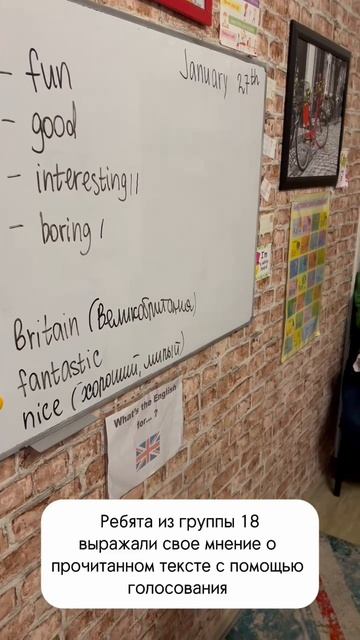 January 27th
- fun
- good
- interesting ||
- boring |
Britain (Великобритания)
fantastic
nice (хороший, милый)
What's the English
for... ?
Ребята из группы 18
выражали свое мнение о
прочитанном тексте с помощью
голосования